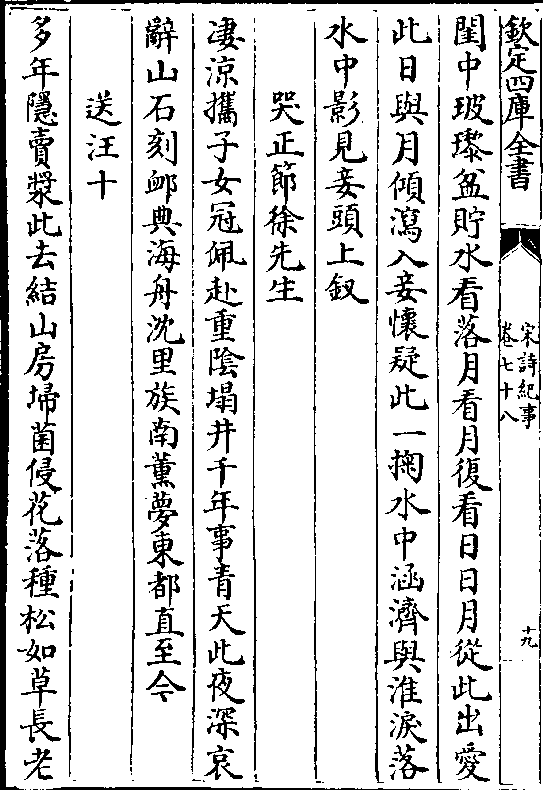 欽定四庫全書
宋詩紀事
卷七十八
十九
閨中玻瓈盆貯水看落月看月復看日日月從此出愛
此日與月傾瀉入妾懷疑此一掬水中涵濟與淮淚落
水中影見妾頭上釵
哭正節徐先生
凄涼攜子女冠佩赴重陰塌井千年事青天此夜深哀
辭山石刻卹典海舟沈里族南薰夢東都直至今
送汪十
多年隱賣漿此去結山房埽菌侵花落種松如草長老